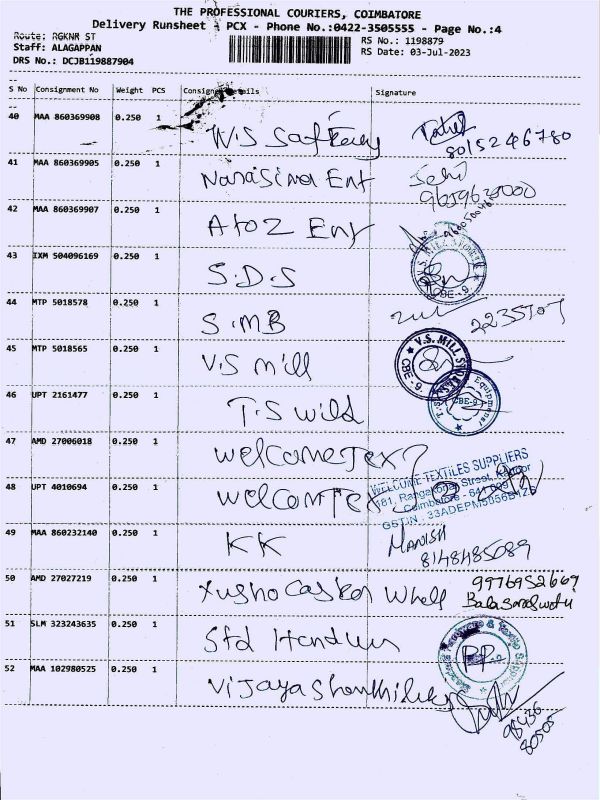 THE PROFESSIONAL COURIERS, COIMBATORE
Delivery Runsheet - PCX - Phone No.:0422-3505555 - Page No.:4
Route: RGKNR ST
Staff: ALAGAPPAN
DRS No.: DCJB119887904
RS No.: 1198879
RS Date: 03-Jul-2023
S No Consignment No Weight PCS Consignee Details Signature
40 MAA 860369908 0.250 1 V.S Safety
8015246780
41 MAA 860369905 0.250 1 Narasima Ent
42 MAA 860369907 0.250 1 A to Z Ent
43 IXM 504096169 0.250 1 S.D.S
V.S. MILL STORES
CBE-9
44 MTP 5018578 0.250 1 S.MB
45 MTP 5018565 0.250 1 V.S mill
V.S. MILL STORES
CBE-9
46 UPT 2161477 0.250 1 T.S wild
Equipments
CBE-9
47 AMD 27006018 0.250 1 Welcome Tex
48 UPT 4010694 0.250 1 Welcom Tex
WELCOME TEXTILES SUPPLIERS
Street,
Coimbatore - 641 009
GSTIN : 33ADEPM5056B1ZB
49 MAA 860232140 0.250 1 KK
MANISH
8148485089
50 AMD 27027219 0.250 1
9976952669
51 SLM 323243635 0.250 1 Std
52 MAA 102980525 0.250 1 Vijayashanthi
98436
80505